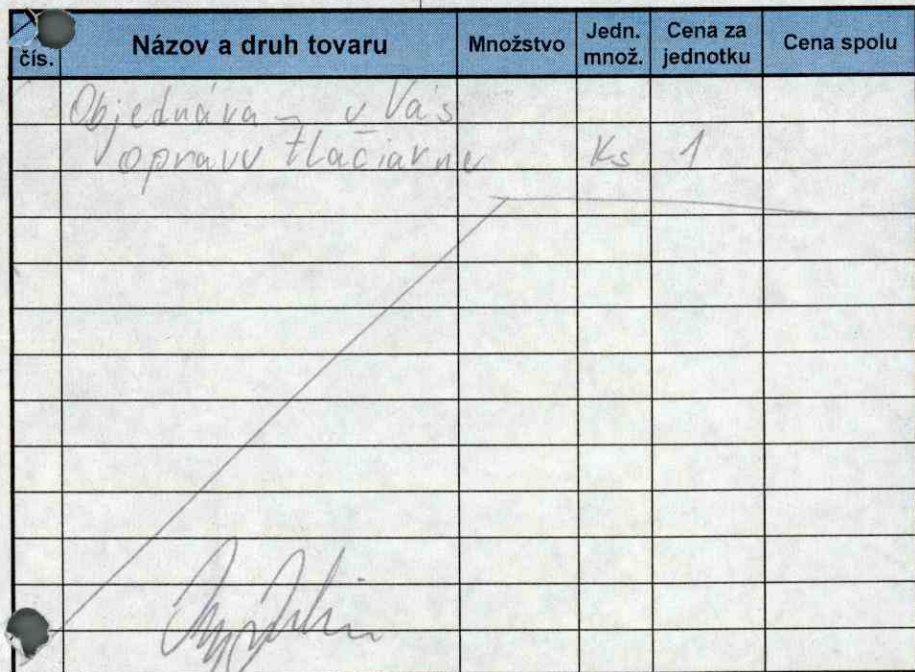 čís. Názov a druh tovaru Množstvo Jedn. množ. Cena za jednotku Cena spolu
Objednáva – u Vás
opravu tlačiarne Ks 1